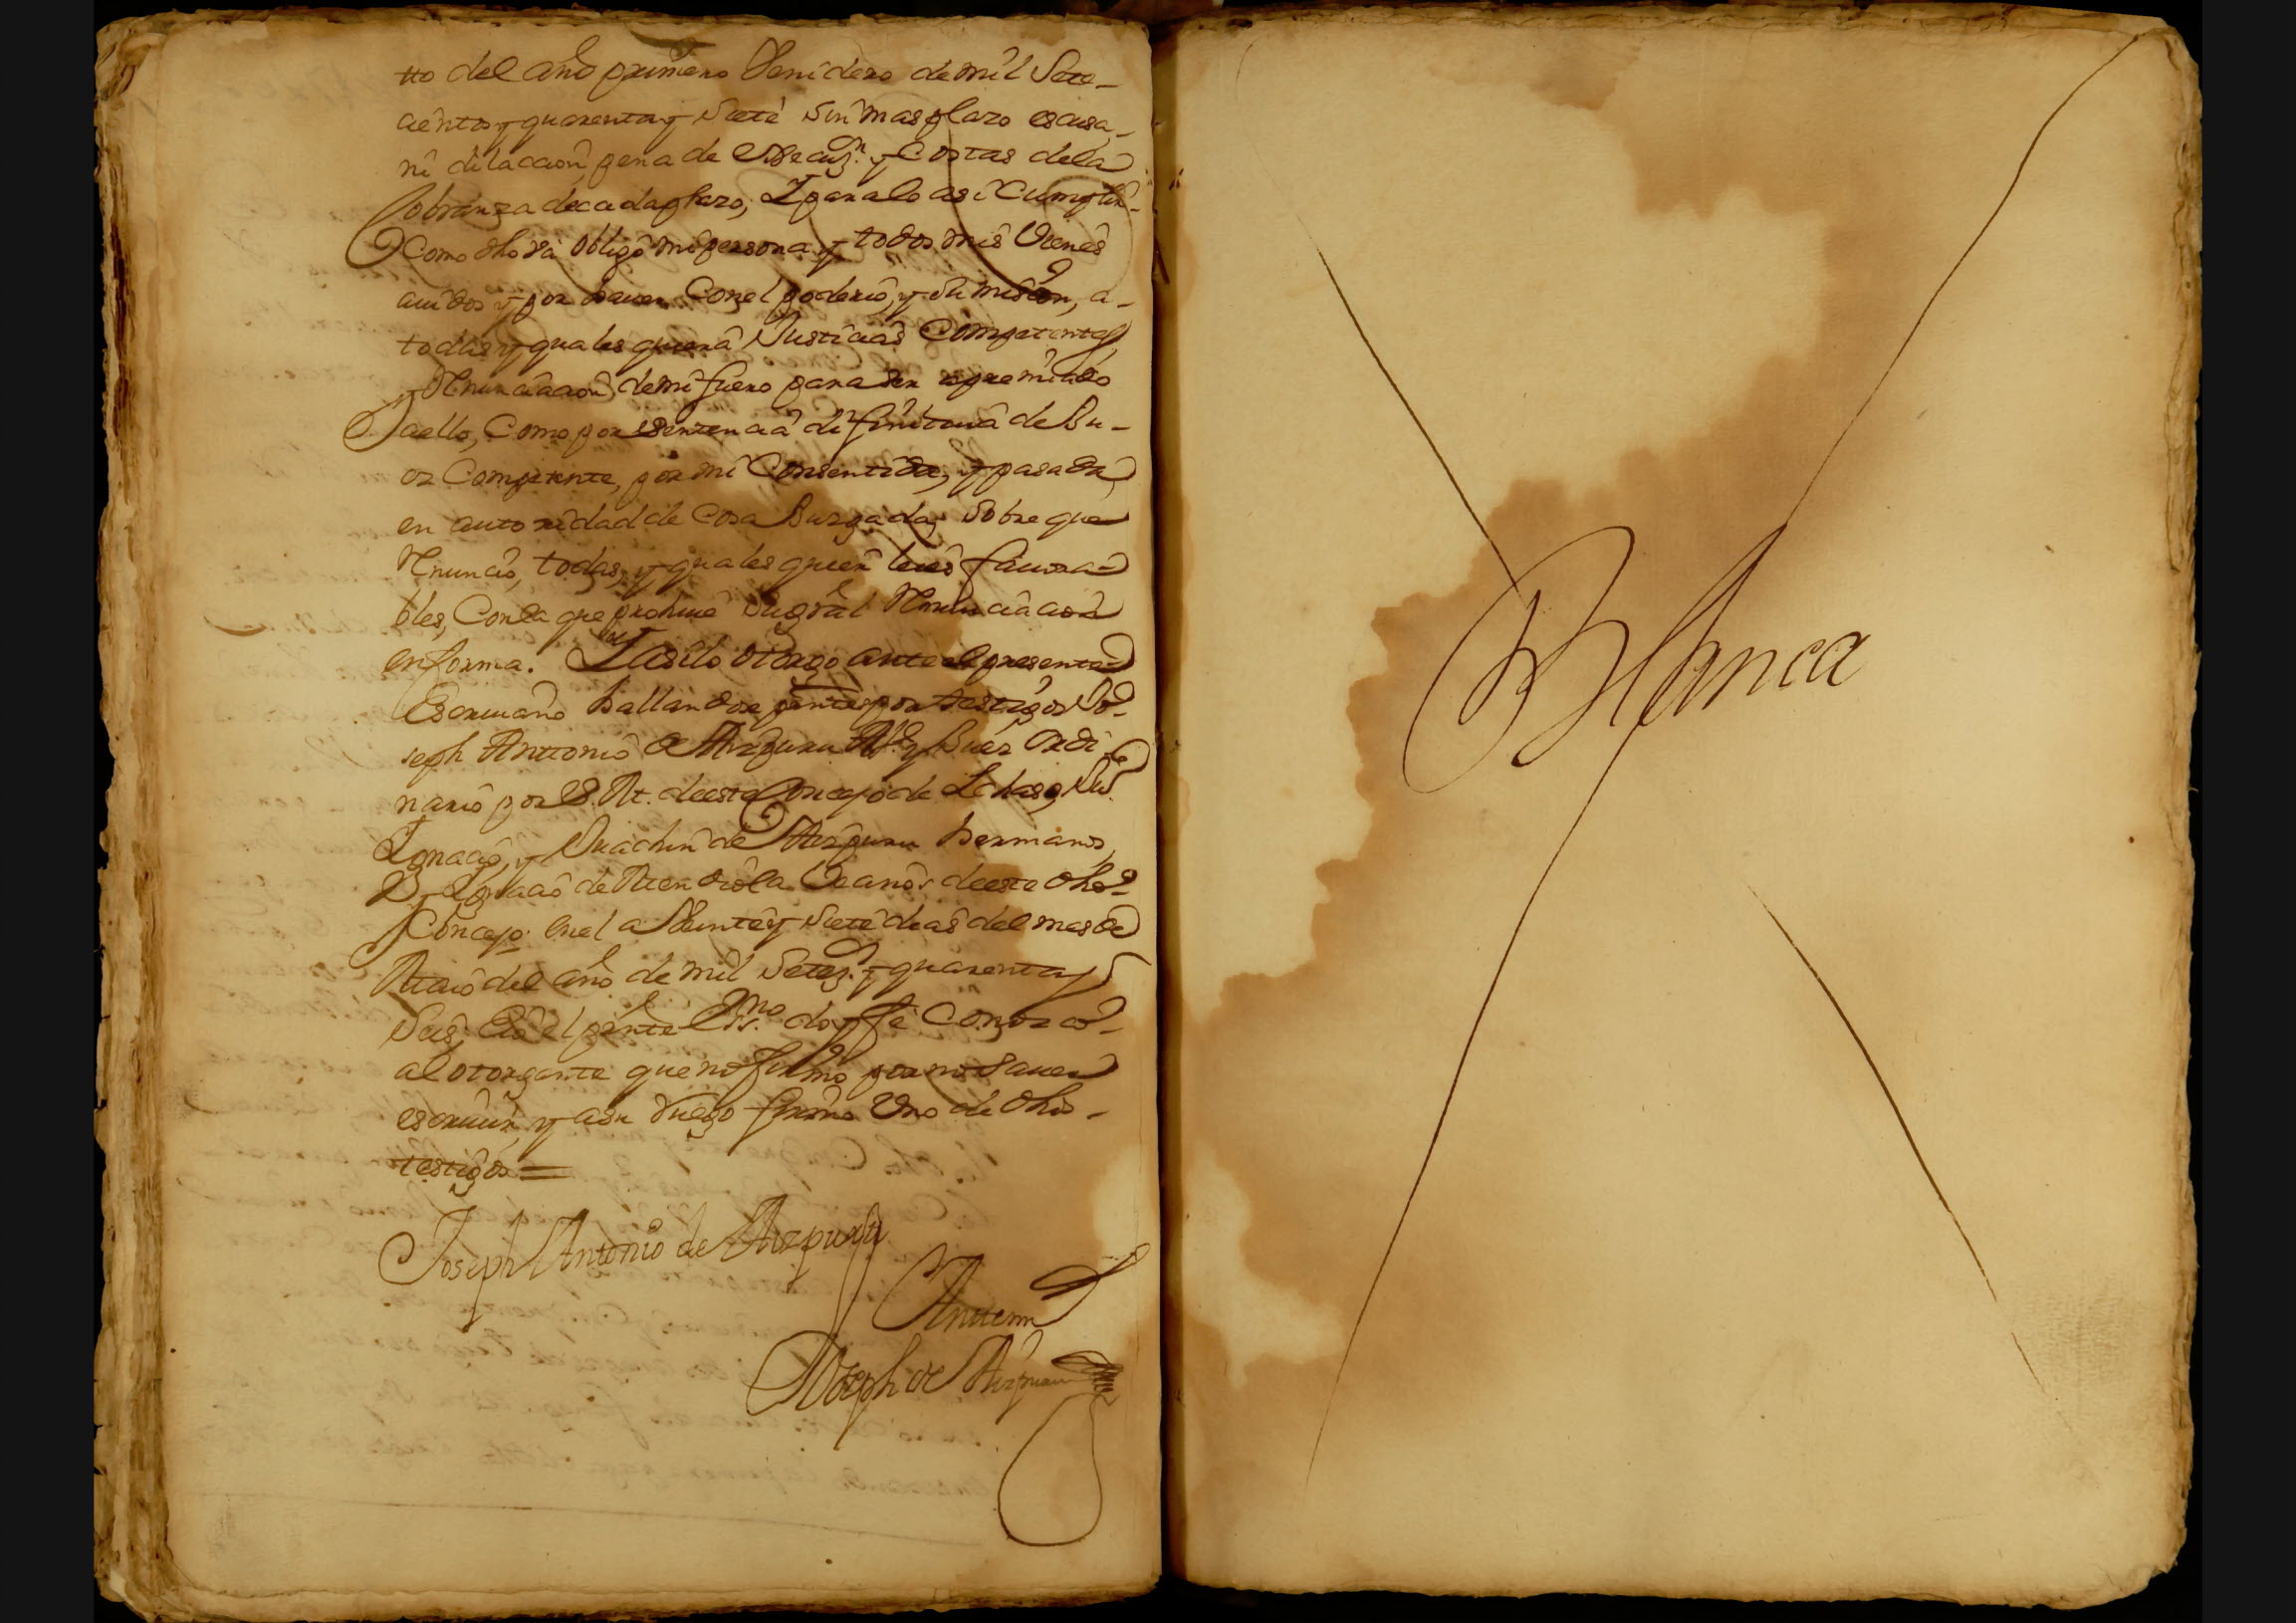 tto del año primero Venidero de mil Sete-
cientos y quarenta y Siete Sin mas plazo escusa,
ni dilaccion, pena de Execuz.n y Costas dela
Cobranza de cada plazo, Y para lo asi Cumplir-
Como dho va obligo mi persona y todos mis Vienes
auidos y por hauer Con el poderio, y Sumision, a-
todas y quales quiera Justicias Competentes
y Renunciacion de mi fuero para ser apremiado
aello, Como por sentencia difinitiua de Ju-
ez Competente, por mi Consentida, y pasada
en autoridad de Cosa Juzgada, Sobre que
Renuncio, todas, y quales quier leies fauora-
bles, Con la que prohiue la gral Renunciacion
en forma. Y asi lo otorgo ante el presente
Escriuano hallandose pntes por testigos Jo-
seph Anttonio de Aizpuru Alc.e y Juez Ordi-
nario por S. M. de este Concejo de
Ignacio, y Juachin de Aizpuru hermanos,
Ignacio de Mendiola Vecinos de este dho-
Concejo. en el a Veinte y Siete dias del mes de
Maio del año de mil Setez.s y quarenta y
Seis, E Io el pnte Ess.no doy fe Conozco-
al otorgante que no firmo por no Sauer
escriuir, y asu ruego firmo Vno de dhos-
testigos =
Joseph Antonio de Aizpuru
Anttemi
Joseph de Aizpuru
Blanca